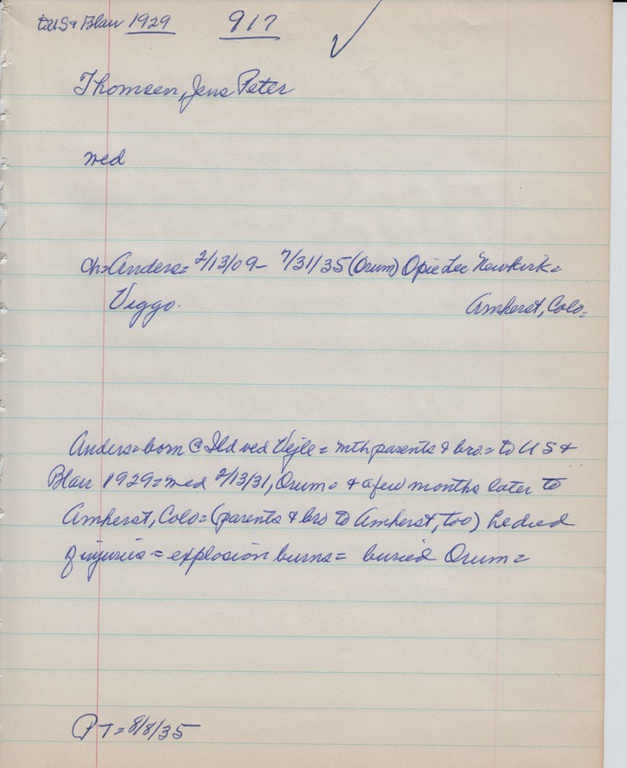 to US & Blair 1929 917
Thomsen, Jens Peter
med
ch = Anders = 2/13/09 - 7/31/35 (Orum) Opie Lee Newkirk =
Viggo. Amherst, Colo =
Anders = born @ Ildved Vejle = mth parents & bro = to US &
Blair 1929 = med 2/13/31, Orum = & a few months later to
Amherst, Colo = (parents & bro to Amherst, too) he died
of injuries = explosion burns = buried Orum =
PT = 8/8/35